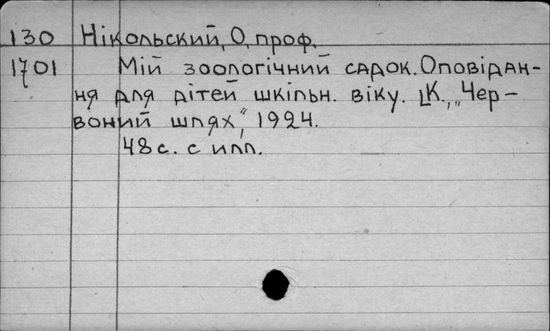 130 Нікольский, О, проф.
1701 Мій зоологічний садок. Оповідан-
ня для дітей шкільн. віку. [К., „Чер-
воний шлях“, 1924.
48 с. с илл.